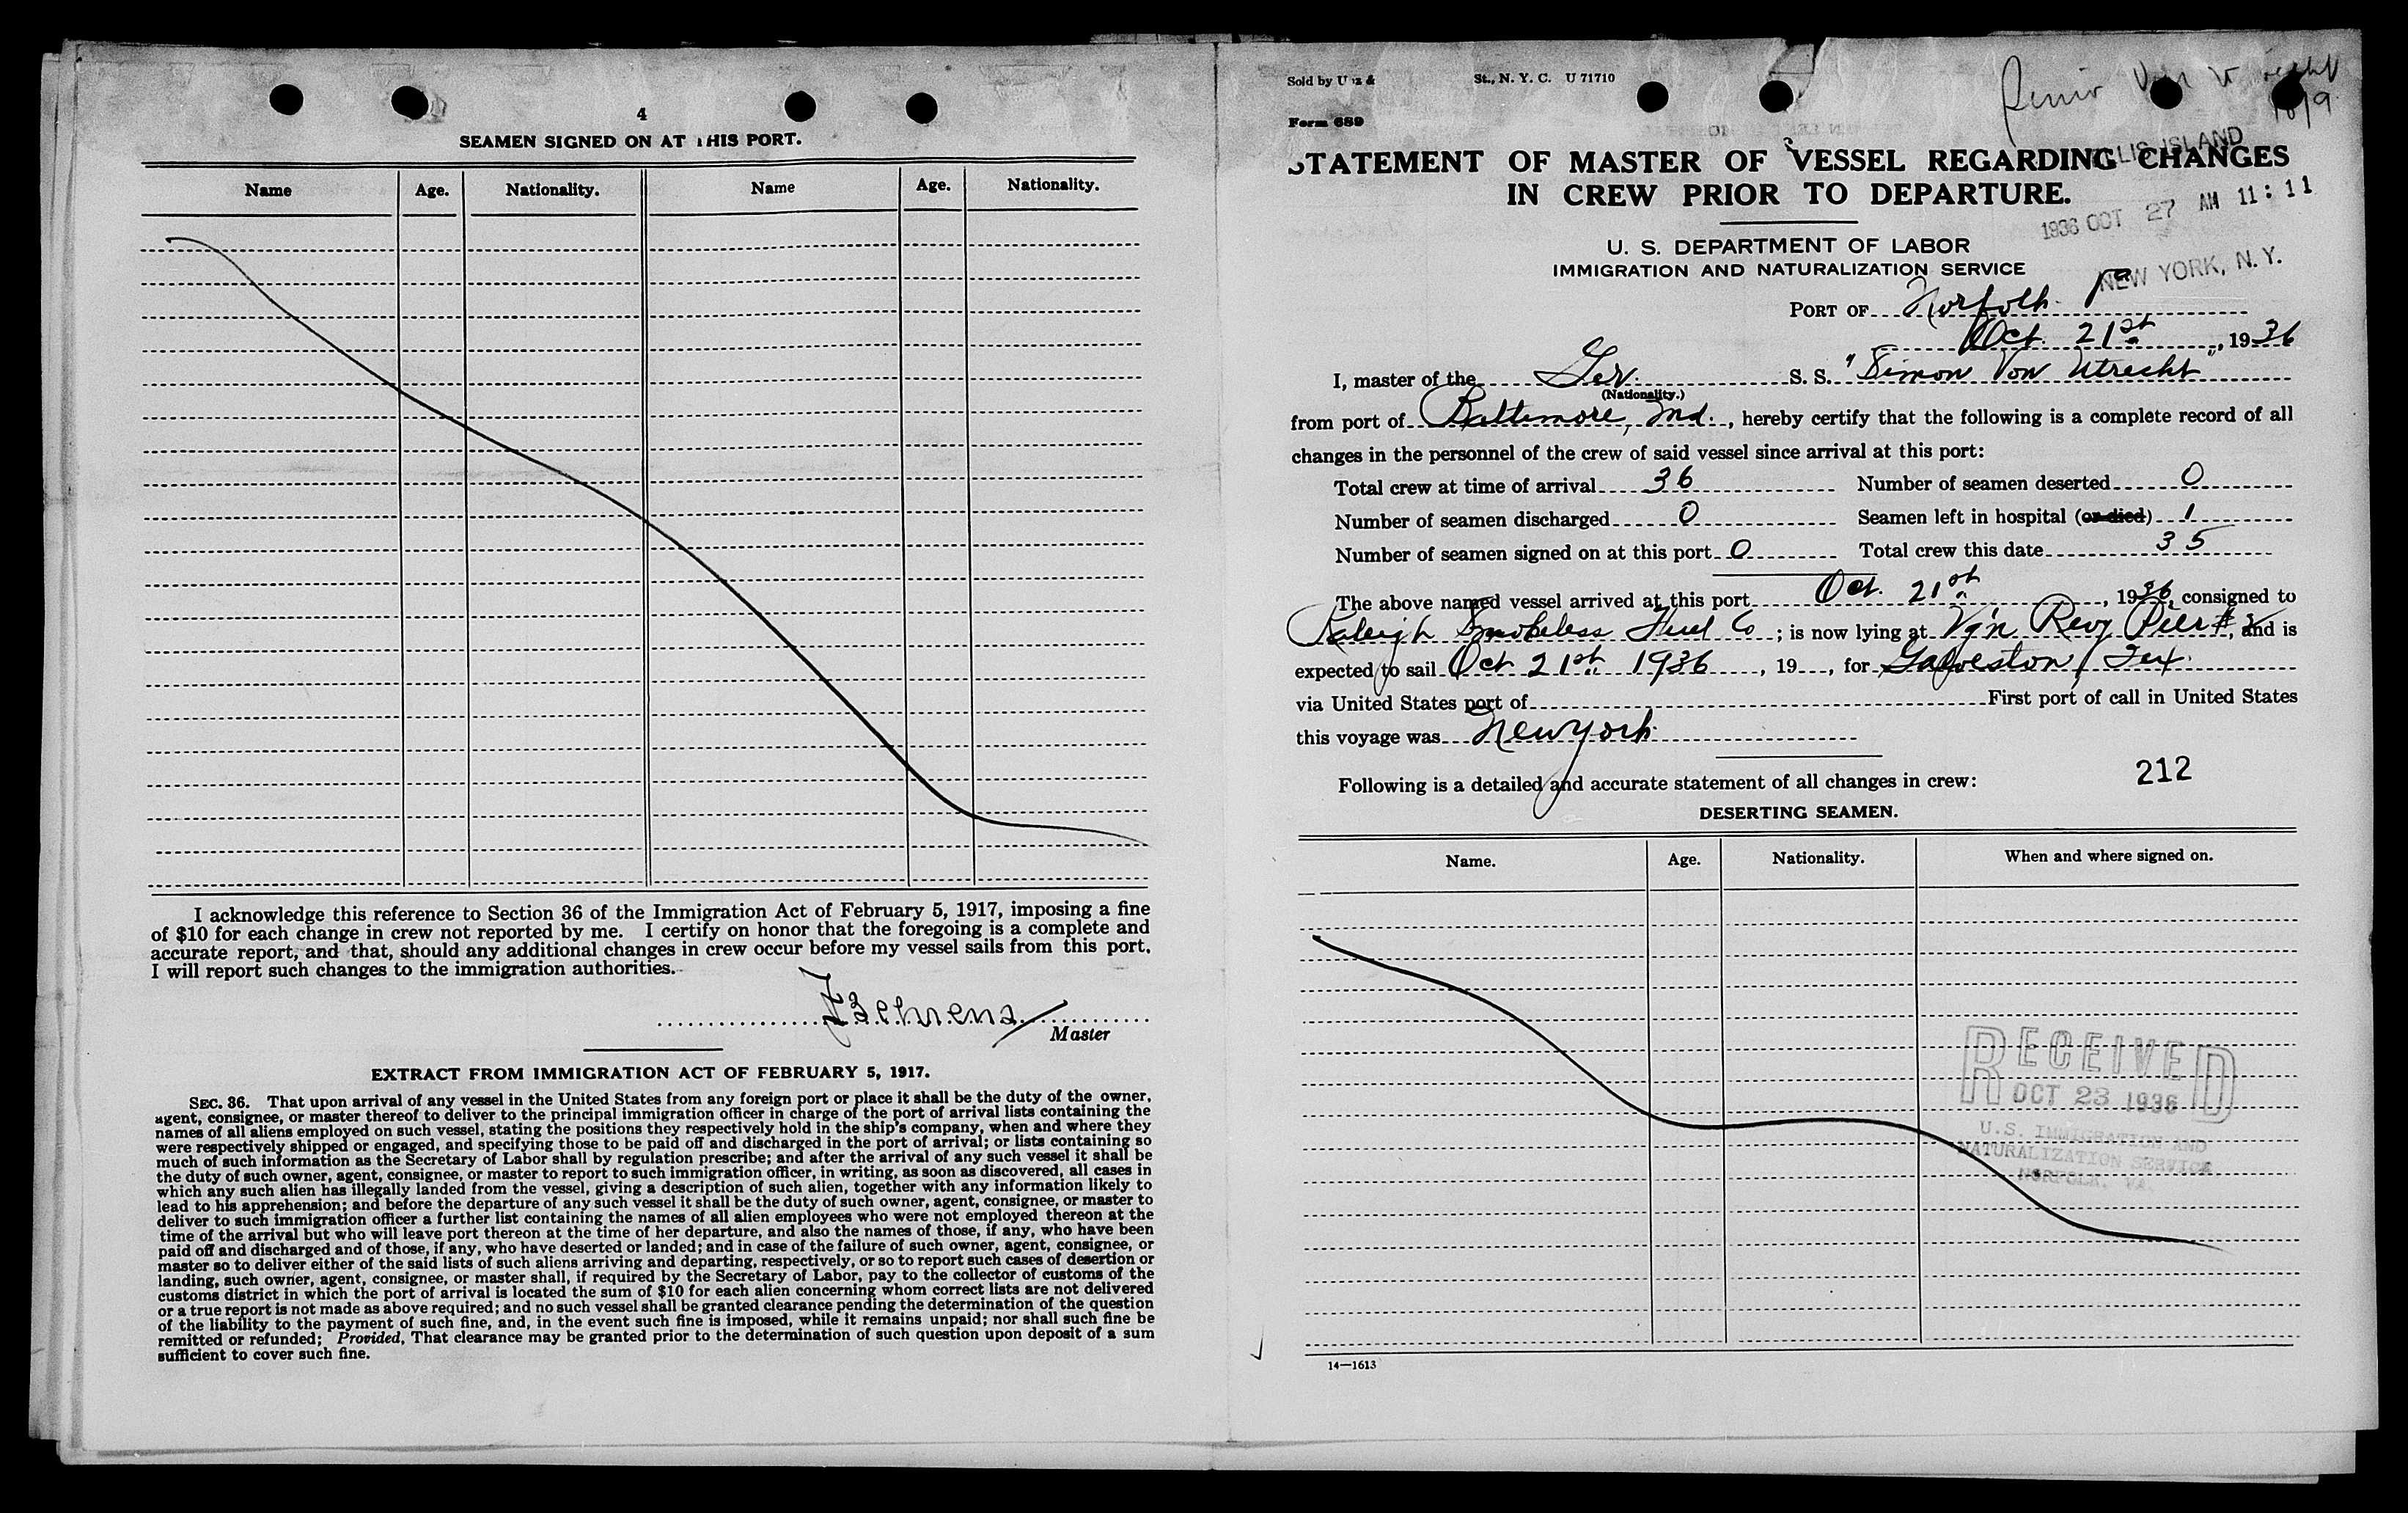 4
SEAMEN SIGNED ON AT THIS PORT.
Name Age. Nationality. Name Age. Nationality.
I acknowledge this reference to Section 36 of the Immigration Act of February 5, 1917, imposing a fine
of $10 for each change in crew not reported by me. I certify on honor that the foregoing is a complete and
accurate report, and that, should any additional changes in crew occur before my vessel sails from this port,
I will report such changes to the immigration authorities.
Behrens
Master
EXTRACT FROM IMMIGRATION ACT OF FEBRUARY 5, 1917.
SEC. 36. That upon arrival of any vessel in the United States from any foreign port or place it shall be the duty of the owner,
agent, consignee, or master thereof to deliver to the principal immigration officer in charge of the port of arrival lists containing the
names of all aliens employed on such vessel, stating the positions they respectively hold in the ship's company, when and where they
were respectively shipped or engaged, and specifying those to be paid off and discharged in the port of arrival; or lists containing so
much of such information as the Secretary of Labor shall by regulation prescribe; and after the arrival of any such vessel it shall be
the duty of such owner, agent, consignee, or master to report to such immigration officer, in writing, as soon as discovered, all cases in
which any such alien has illegally landed from the vessel, giving a description of such alien, together with any information likely to
lead to his apprehension; and before the departure of any such vessel it shall be the duty of such owner, agent, consignee, or master to
deliver to such immigration officer a further list containing the names of all alien employees who were not employed thereon at the
time of the arrival but who will leave port thereon at the time of her departure, and also the names of those, if any, who have been
paid off and discharged and of those, if any, who have deserted or landed; and in case of the failure of such owner, agent, consignee, or
master so to deliver either of the said lists of such aliens arriving and departing, respectively, or so to report such cases of desertion or
landing, such owner, agent, consignee, or master shall, if required by the Secretary of Labor, pay to the collector of customs of the
customs district in which the port of arrival is located the sum of $10 for each alien concerning whom correct lists are not delivered
or a true report is not made as above required; and no such vessel shall be granted clearance pending the determination of the question
of the liability to the payment of such fine, and, in the event such fine is imposed, while it remains unpaid; nor shall such fine be
remitted or refunded; Provided, That clearance may be granted prior to the determination of such question upon deposit of a sum
sufficient to cover such fine.
Sold by St., N. Y. C. U 71710
Form 689
10/9
ELLIS ISLAND
STATEMENT OF MASTER OF VESSEL REGARDING CHANGES
IN CREW PRIOR TO DEPARTURE.
1936 OCT 27 AM 11:11
U. S. DEPARTMENT OF LABOR
IMMIGRATION AND NATURALIZATION SERVICE
NEW YORK, N.Y.
PORT OF Norfolk Va
Oct. 21st, 1936
I, master of the Ger. S. S. "Simon Von Utrecht"
(Nationality.)
from port of Baltimore, Md., hereby certify that the following is a complete record of all
changes in the personnel of the crew of said vessel since arrival at this port:
Total crew at time of arrival 36 Number of seamen deserted 0
Number of seamen discharged 0 Seamen left in hospital (or died) 1
Number of seamen signed on at this port 0 Total crew this date 35
The above named vessel arrived at this port Oct. 21st, 1936, consigned to
Raleigh Smokeless Fuel Co; is now lying at Vg'n Rwy Pier #2, and is
expected to sail Oct 21st 1936, 19, for Galveston, Tex.
via United States port of First port of call in United States
this voyage was New York
Following is a detailed and accurate statement of all changes in crew:
212
DESERTING SEAMEN.
Name. Age. Nationality. When and where signed on.
RECEIVED
OCT 23 1936
U.S. IMMIGRATION AND
NATURALIZATION SERVICE
NORFOLK, VA.
14—1613